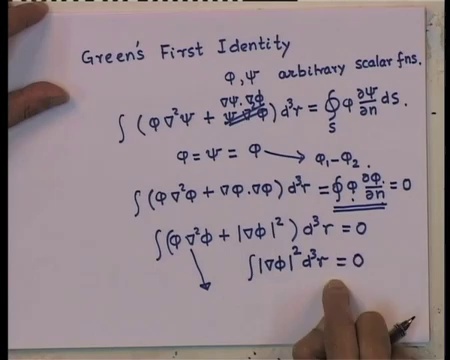 Green's First Identity
φ, ψ arbitrary scalar fns.
∇ψ·∇φ
∫ (φ∇²ψ + ψ∇²φ) d³r = ∮_S φ ∂ψ/∂n ds.
φ = ψ = φ → φ₁-φ₂.
∫ (φ∇²φ + ∇φ·∇φ) d³r = ∮ φ ∂φ/∂n = 0
∫ (φ∇²φ + |∇φ|²) d³r = 0
∫ |∇φ|² d³r = 0